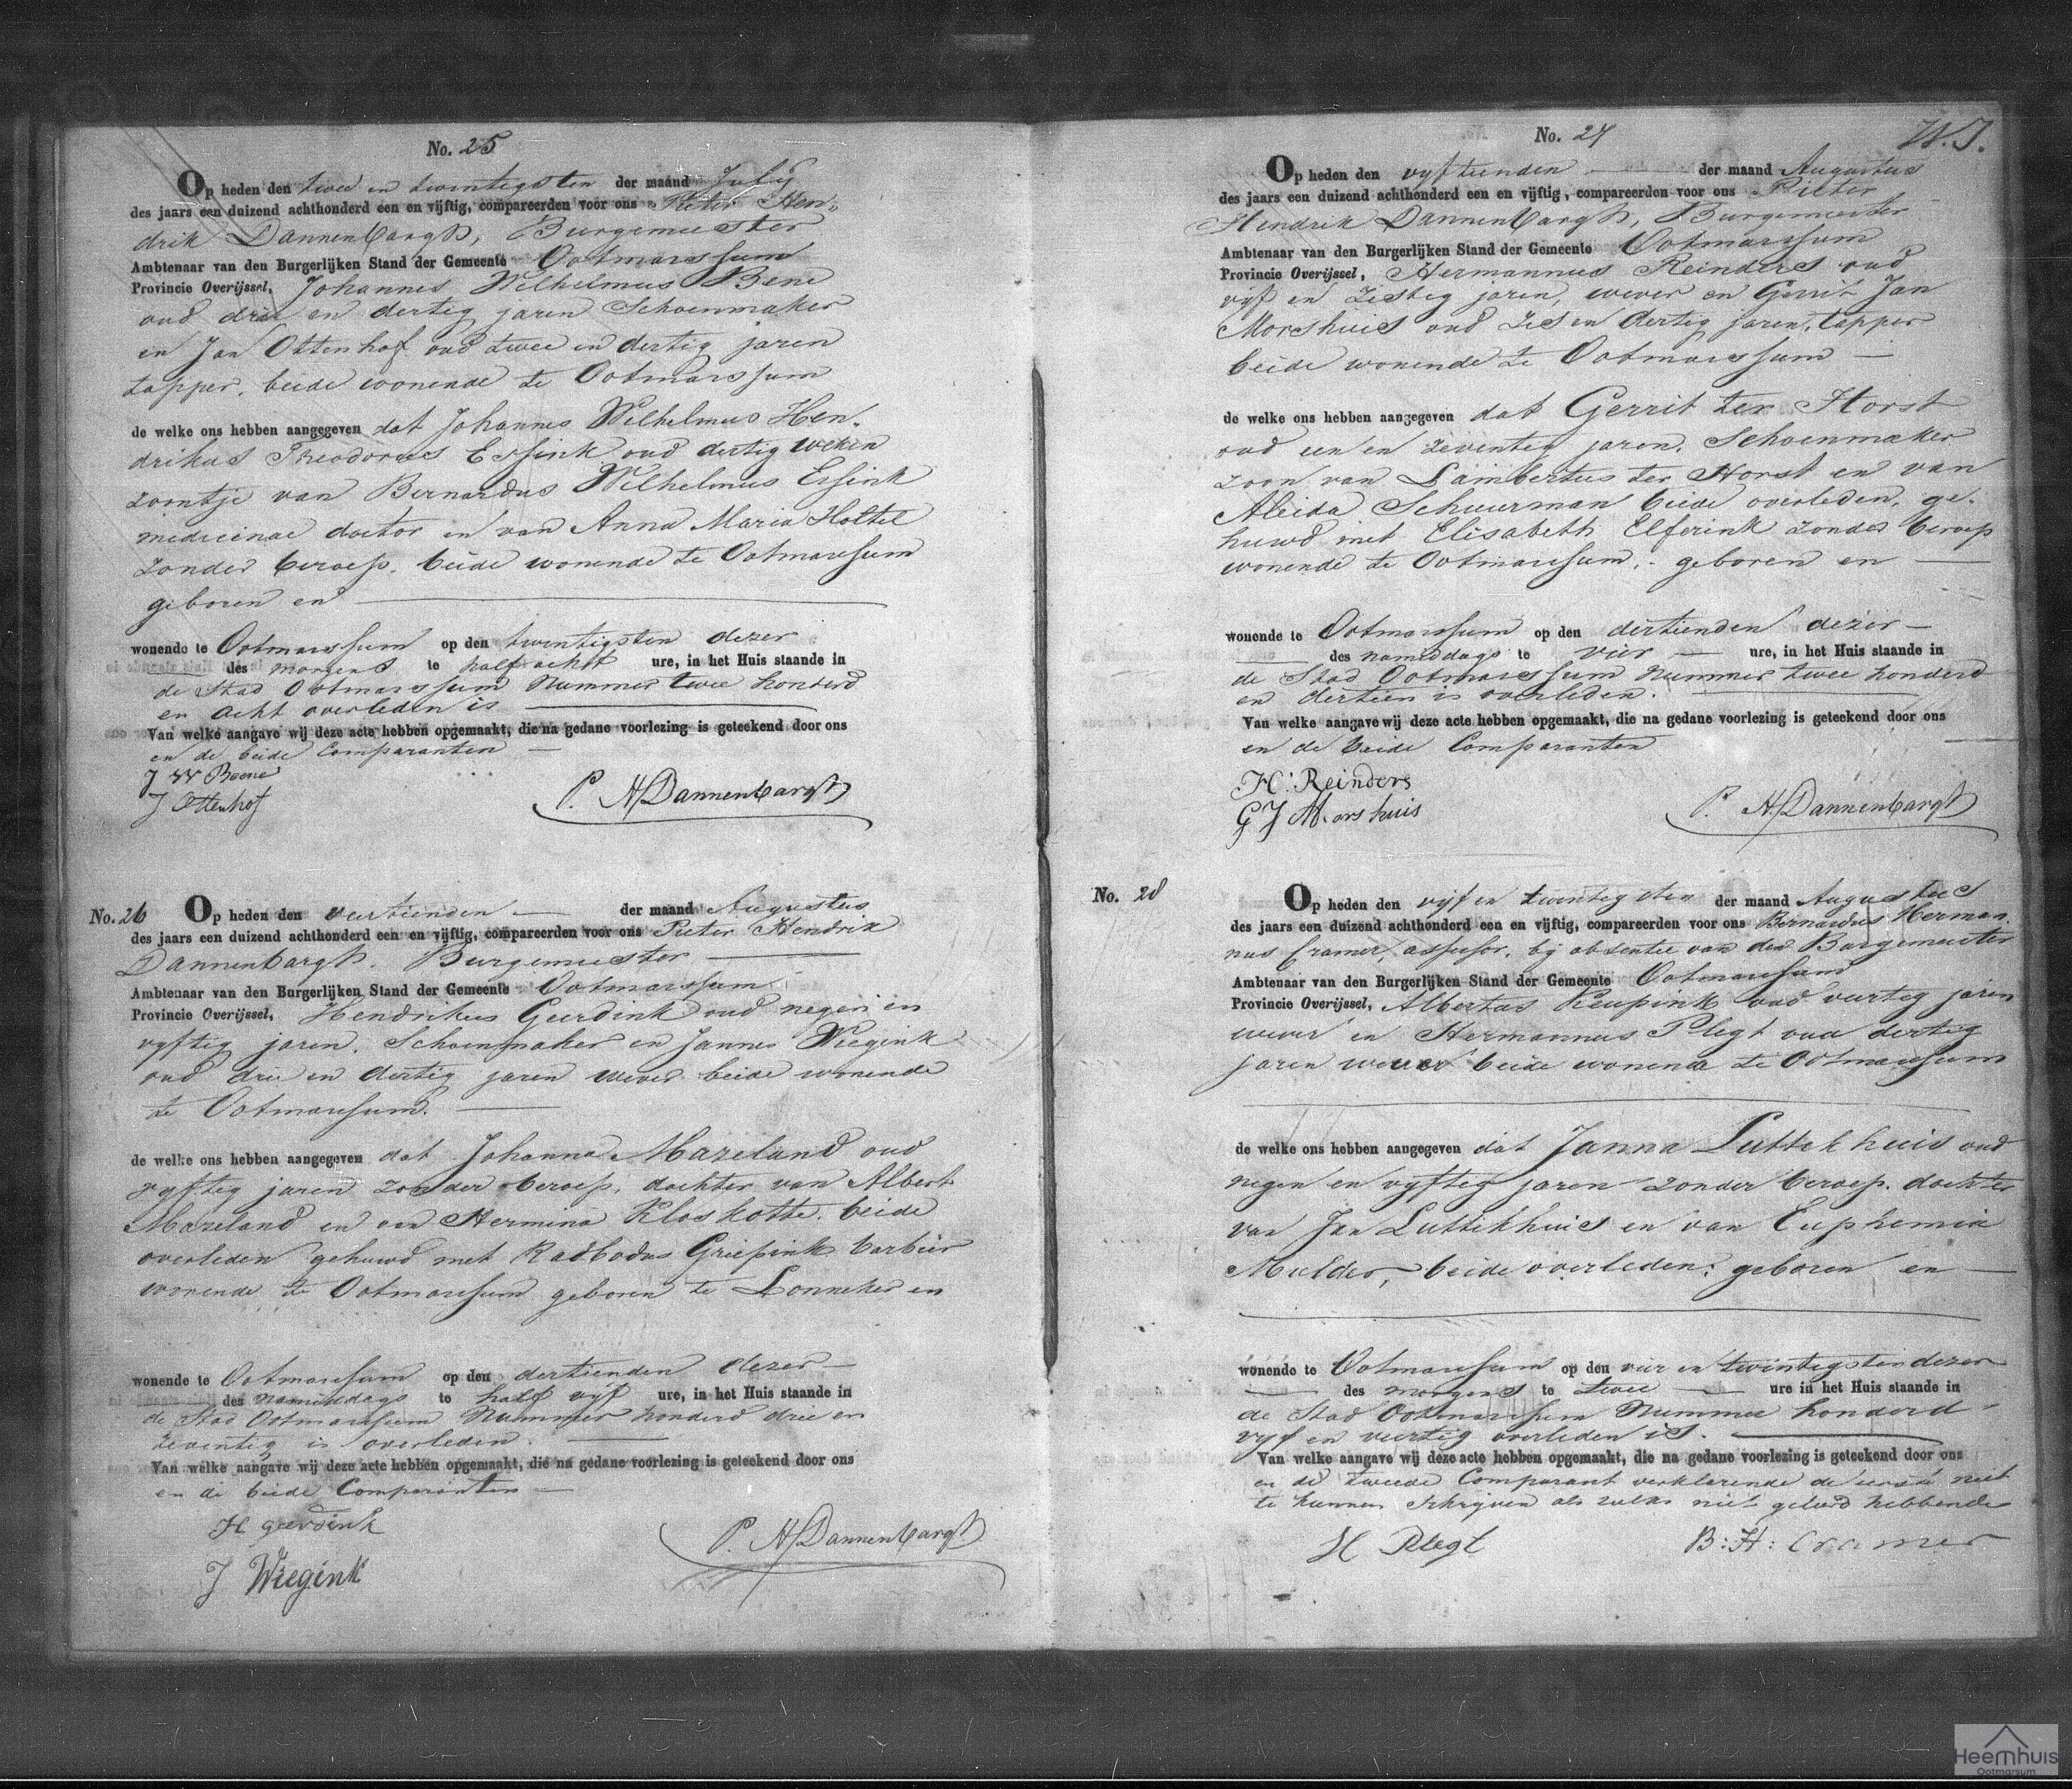 No. 25
Op heden den twee en twintigsten der maand July
des jaars een duizend achthonderd een en vijftig, compareerden voor ons Pieter Hen„
drik Dannenbargh, Burgemeester
Ambtenaar van den Burgerlijken Stand der Gemeente Ootmarssum
Provincie Overijssel, Johannes Wilhelmus Bene
oud drie en dertig jaren Schoenmaker
en Jan Ottenhof oud twee en dertig jaren
tapper, beide wonende te Ootmarssum
de welke ons hebben aangegeven dat Johannes Wilhelmus Hen„
drikus Theodorus Essink oud dertig weken
zoontje van Bernardus Wilhelmus Essink
medicinae doctor en van Anna Maria Holtel
zonder beroep, beide wonende te Ootmarssum
geboren en
wonende te Ootmarssum op den twintigsten dezer
des morgens te half acht ure, in het Huis staande in
de Stad Ootmarssum Nummer twee honderd
en acht overleden is
Van welke aangave wij deze acte hebben opgemaakt, die na gedane voorlezing is geteekend door ons
en de beide Comparanten
J W Beene
J Ottenhof
P. H. Dannenbargh
No. 26
Op heden den veertienden der maand Augustus
des jaars een duizend achthonderd een en vijftig, compareerden voor ons Pieter Hendrik
Dannenbargh, Burgemeester
Ambtenaar van den Burgerlijken Stand der Gemeente Ootmarssum
Provincie Overijssel, Hendrikus Geerdink oud negen en
vyftig jaren, Schoenmaker en Jannes Wiegink
oud drie en dertig jaren wever beide wonende
te Ootmarssum.
de welke ons hebben aangegeven dat Johanna Mazeland oud
vyftig jaren zonder beroep, dochter van Albert
Mazeland en van Hermina Kloskotte, beide
overleden gehuwd met Radbodus Griepink barbier
wonende te Ootmarssum geboren te Lonneker en
wonende te Ootmarssum op den dertienden dezer
des namiddags te half vyf ure, in het Huis staande in
de Stad Ootmarssum Nummer honderd drie en
zeventig is overleden.
Van welke aangave wij deze acte hebben opgemaakt, die na gedane voorlezing is geteekend door ons
en de beide Comparanten
H geerdink
J Wiegink
P. H. Dannenbargh
No. 27
Op heden den vyftienden der maand Augustus
des jaars een duizend achthonderd een en vijftig, compareerden voor ons Pieter
Hendrik Dannenbargh, Burgemeester
Ambtenaar van den Burgerlijken Stand der Gemeente Ootmarssum
Provincie Overijssel, Hermannus Reinders oud
vijf en zestig jaren, wever en Gerrit Jan
Morshuis oud zes en dertig jaren, tapper
beide wonende te Ootmarssum
de welke ons hebben aangegeven dat Gerrit ter Horst
oud een en zeventig jaren, Schoenmaker
zoon van Lambertus ter Horst en van
Aleida Schuurman beide overleden, ge„
huwd met Elisabeth Elferink zonder beroep
wonende te Ootmarssum, geboren en
wonende te Ootmarssum op den dertienden dezer
des namiddags te vier ure, in het Huis staande in
de Stad Ootmarssum Nummer twee honderd
en dertien is overleden.
Van welke aangave wij deze acte hebben opgemaakt, die na gedane voorlezing is geteekend door ons
en de beide Comparanten
H: Reinders
G J Morshuis
P. H. Dannenbargh
No. 28
Op heden den vijf en twintigsten der maand Augustus
des jaars een duizend achthonderd een en vijftig, compareerden voor ons Bernardus Herman„
nus Cramer, assessor, bij absentie van den Burgemeester
Ambtenaar van den Burgerlijken Stand der Gemeente Ootmarssum
Provincie Overijssel, Albertus Reupink oud veertig jaren
wever en Hermannus Plegt oud dertig
jaren wever beide wonende te Ootmarssum
de welke ons hebben aangegeven dat Janna Luttekhuis oud
negen en vyftig jaren zonder beroep, dochter
van Jan Luttikhuis en van Euphemia
Mulder, beide overleden; geboren en
wonende te Ootmarssum op den vier en twintigsten dezer
des morgens te twee ure in het Huis staande in
de Stad Ootmarssum Nummer honderd
vijf en veertig overleden is.
Van welke aangave wij deze acte hebben opgemaakt, die na gedane voorlezing is geteekend door ons
en de tweede Comparant verklarende de eerste niet
te kunnen schrijven als zulks niet geleerd hebbende
H Plegt
B: H: Cramer
Heemhuis
Ootmarsum